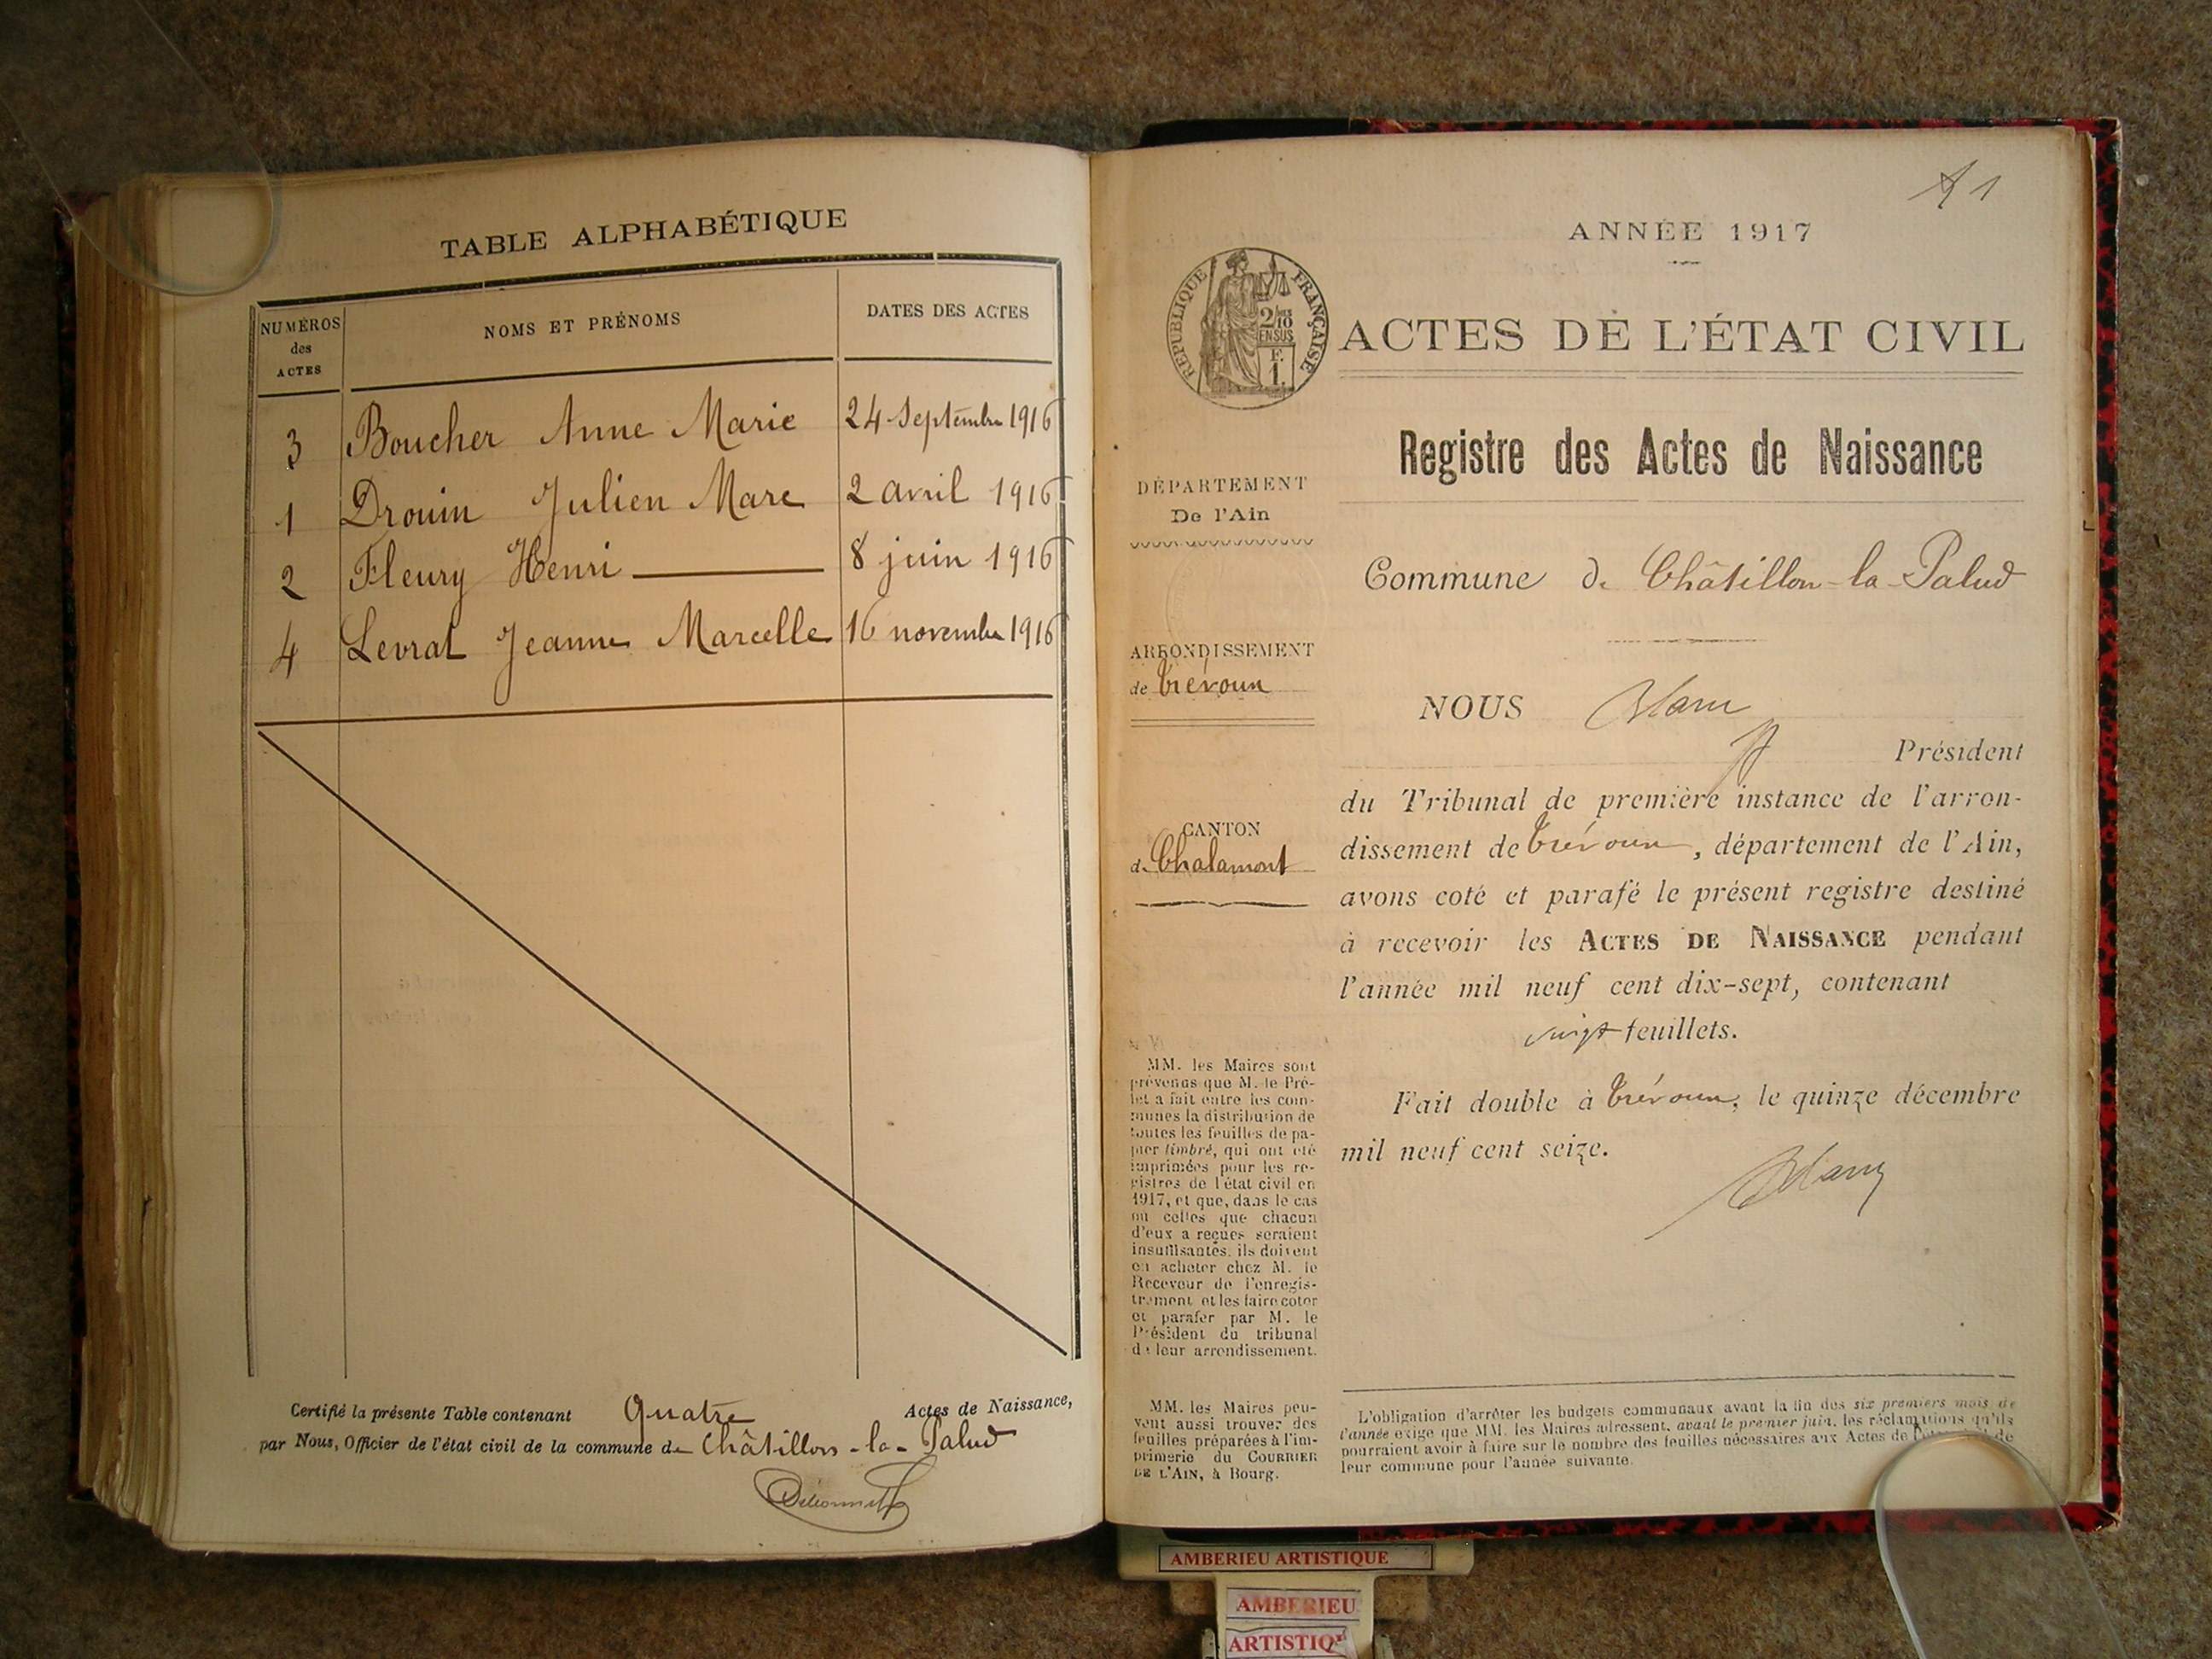 TABLE ALPHABÉTIQUE
NUMÉROS
des
ACTES
NOMS ET PRÉNOMS
DATES DES ACTES
3 Boucher Anne Marie 24 Septembre 1916
1 Drouin Julien Marc 2 avril 1916
2 Fleury Henri 8 juin 1916
4 Levrat Jeanne Marcelle 16 novembre 1916
Certifié la présente Table contenant Quatre Actes de Naissance,
par Nous, Officier de l'état civil de la commune de Châtillon-la-Palud
1
ANNÉE 1917
RÉPUBLIQUE FRANÇAISE
2/10
EN SUS
F.
1.
ACTES DE L'ÉTAT CIVIL
Registre des Actes de Naissance
DÉPARTEMENT
De l'Ain
Commune de Châtillon-la-Palud
ARRONDISSEMENT
de Trévoux
CANTON
de Chalamont
NOUS
Président
du Tribunal de première instance de l'arron-
dissement de Trévoux, département de l'Ain,
avons coté et parafé le présent registre destiné
à recevoir les ACTES DE NAISSANCE pendant
l'année mil neuf cent dix-sept, contenant
vingt feuillets.
Fait double à Trévoux, le quinze décembre
mil neuf cent seize.
MM. les Maires sont
prévenus que M. le Pré-
fet a fait entre les com-
munes la distribution de
toutes les feuilles de pa-
pier timbré, qui ont été
imprimées pour les re-
gistres de l'état civil en
1917, et que, dans le cas
où celles que chacun
d'eux a reçues seraient
insuffisantes, ils doivent
en acheter chez M. le
Receveur de l'enregis-
trement et les faire coter
et parafer par M. le
Président du tribunal
de leur arrondissement.
MM. les Maires peu-
vent aussi trouver des
feuilles préparées à l'im-
primerie du COURRIER
DE L'AIN, à Bourg.
L'obligation d'arrêter les budgets communaux avant la fin des six premiers mois de
l'année exige que MM. les Maires adressent, avant le premier juin, les réclamations qu'ils
pourraient avoir à faire sur le nombre des feuilles nécessaires aux Actes de l'état civil de
leur commune pour l'année suivante.
AMBERIEU ARTISTIQUE
AMBERIEU
ARTISTIQ